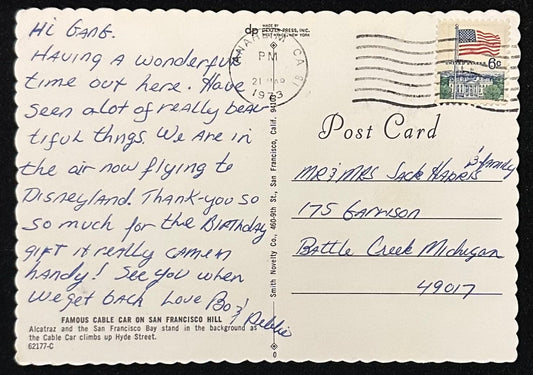 Hi Gang.
Having a wonderful
time out here. Have
seen alot of really beau-
tiful things. We are in
the air now flying to
Disneyland. Thank-you so
so much for the Birthday
gift it really came in
handy! See you when
we get back Love Bo &
Debbie
FAMOUS CABLE CAR ON SAN FRANCISCO HILL
Alcatraz and the San Francisco Bay stand in the background as
the Cable Car climbs up Hyde Street.
62177-C
dp MADE BY
DEXTER PRESS, INC.
WEST NYACK, NEW YORK
Smith Novelty Co., 460-9th St., San Francisco, Calif.
ANAHEIM, CA
PM
21
1973
6c
Post Card
MR & MRS Jack Harris
& family
175 Garrison
Battle Creek Michigan
49017